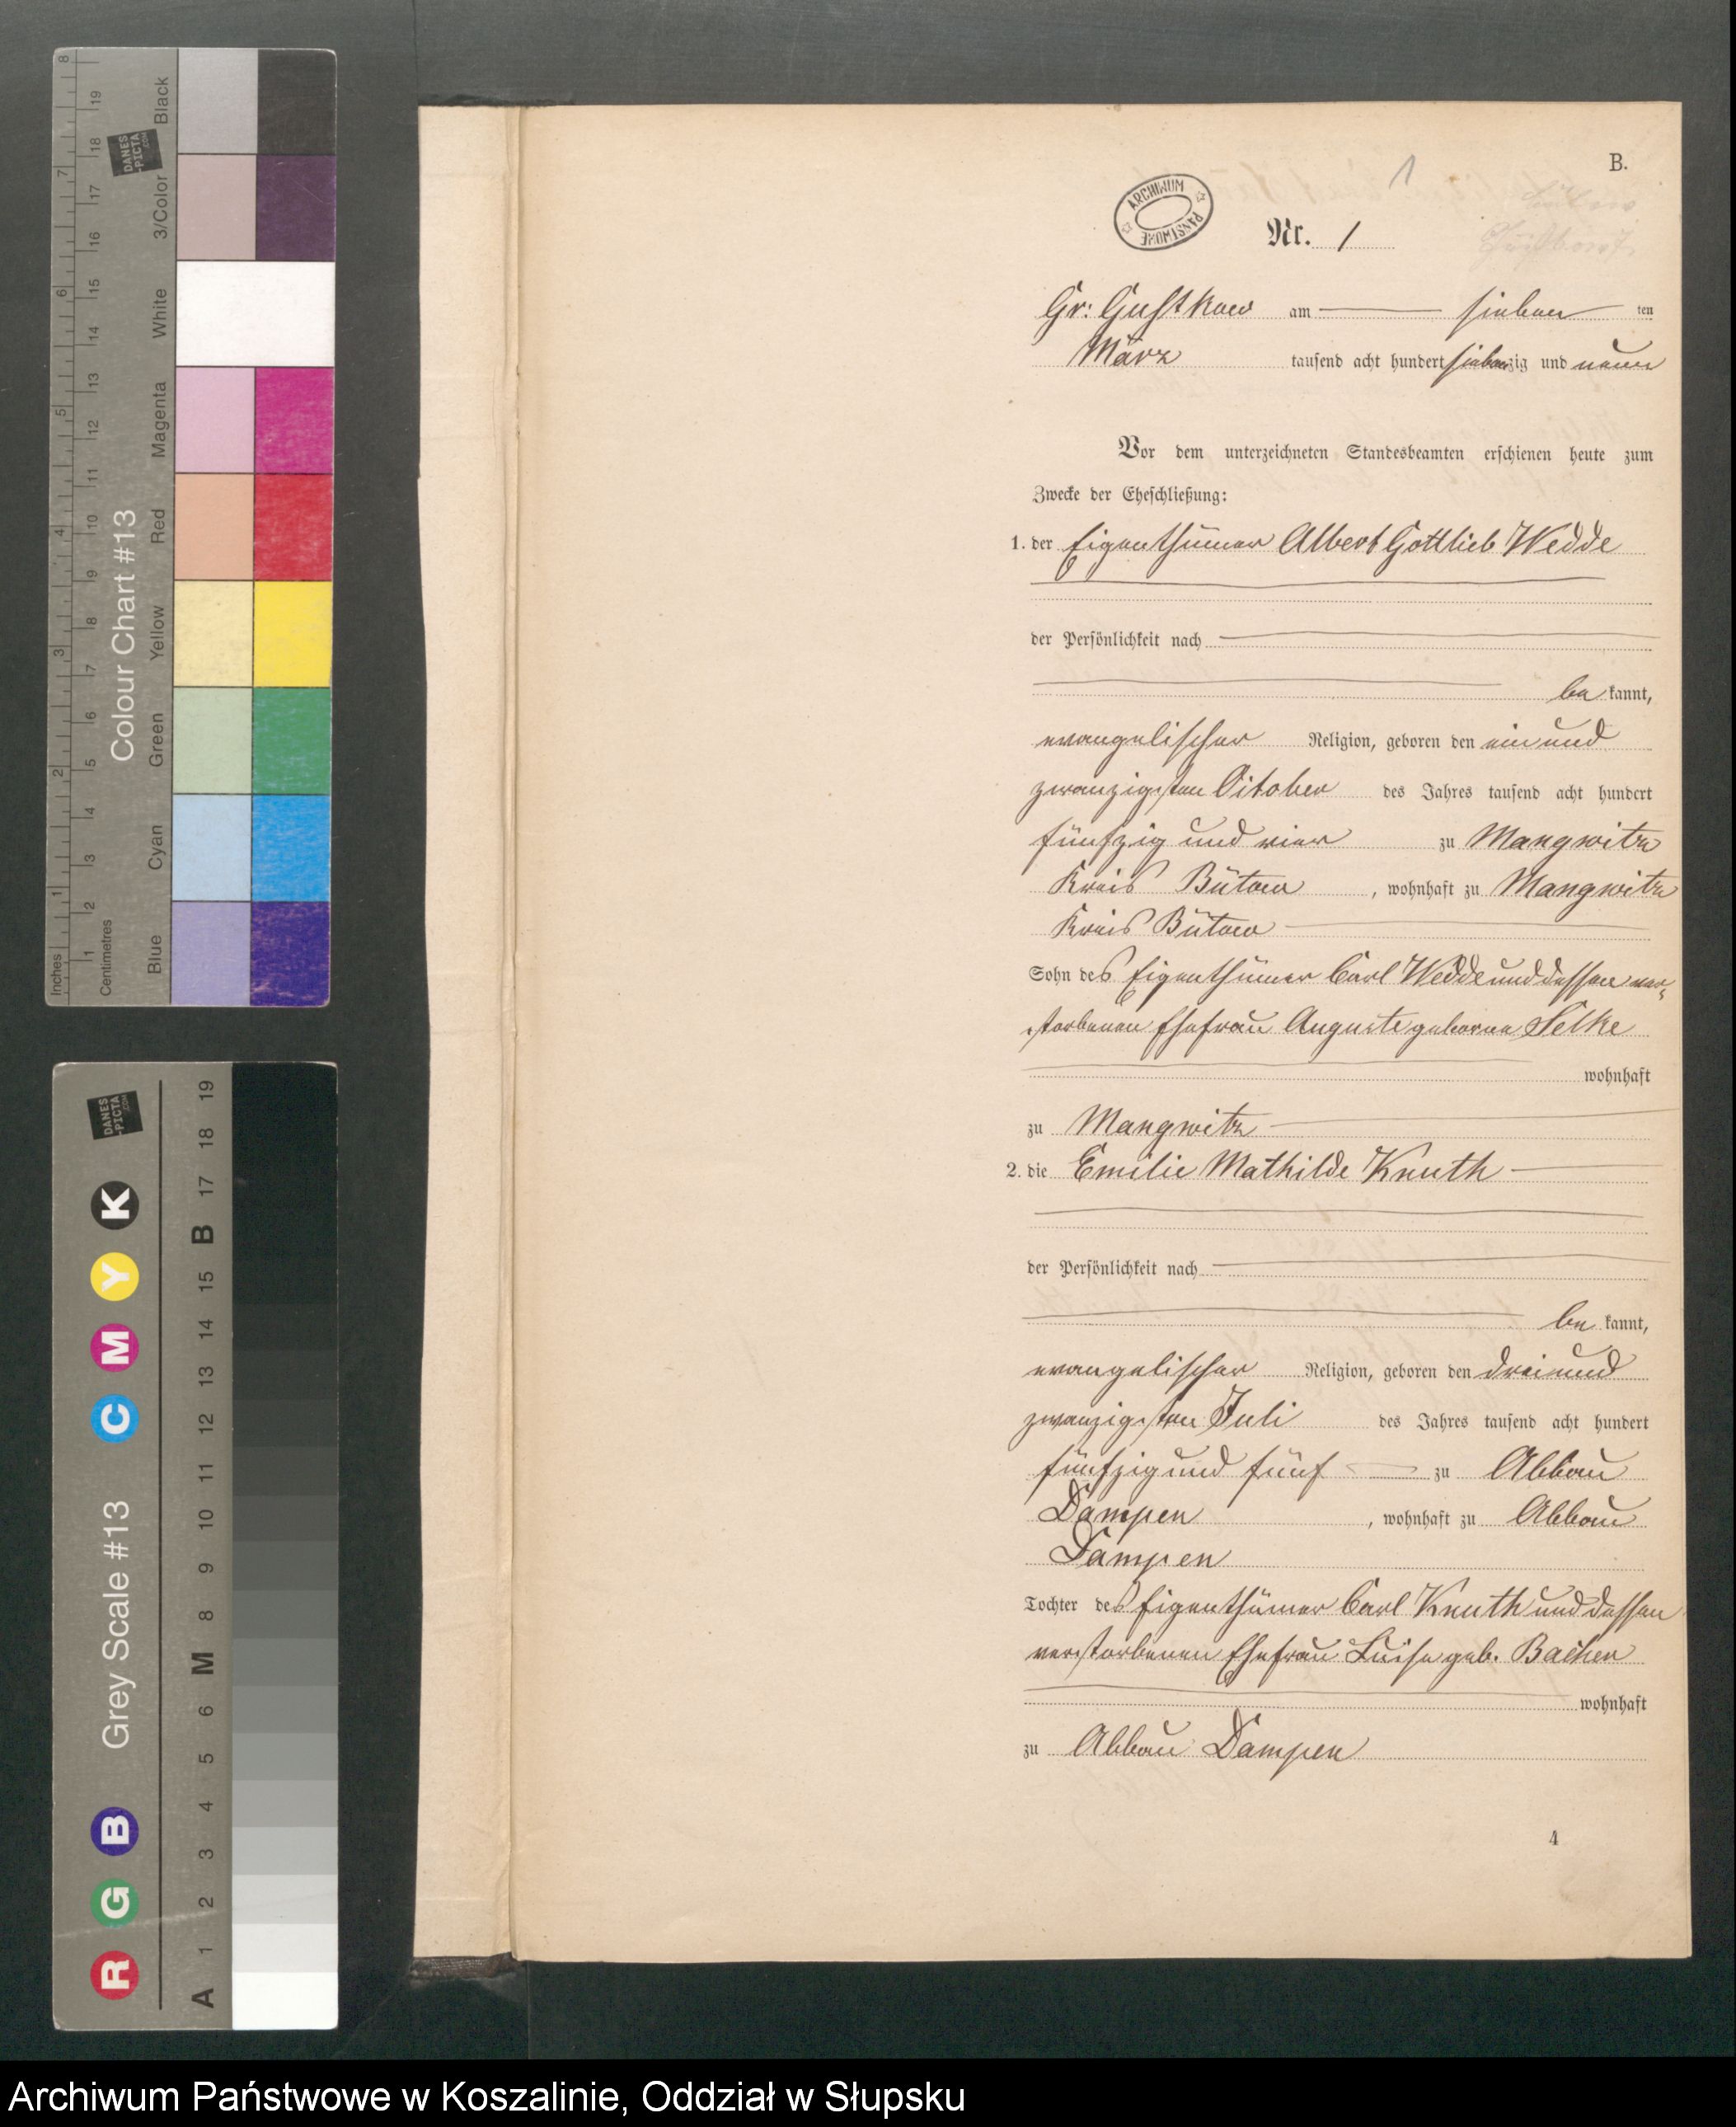 B.
1
ARCHIWUM PAŃSTWOWE
Nr. 1
Gr: Gustkow am siebenten
März tausend acht hundert siebenzig und neun
Vor dem unterzeichneten Standesbeamten erschienen heute zum
Zwecke der Eheschließung:
1. der Eigenthümer Albert Gottlieb Wedde
der Persönlichkeit nach
be kannt,
evangelischer Religion, geboren den ein und
zwanzigsten October des Jahres tausend acht hundert
fünfzig und vier zu Mangwitz
Kreis Bütow, wohnhaft zu Mangwitz
Kreis Bütow
Sohn des Eigenthümer Carl Wedde und dessen ver-
storbenen Ehefrau Auguste geborne Selke
wohnhaft
zu Mangwitz
2. die Emilie Mathilde Knuth
der Persönlichkeit nach
be kannt,
evangelischer Religion, geboren den drei und
zwanzigsten Juli des Jahres tausend acht hundert
fünfzig und fünf zu Abbau
Dampen, wohnhaft zu Abbau
Dampen
Tochter des Eigenthümer Carl Knuth und dessen
verstorbenen Ehefrau Luise geb.
wohnhaft
zu Abbau Dampen
4
Colour Chart #13
Blue Cyan Green Yellow Red Magenta White 3/Color Black
Inches 1 2 3 4 5 6 7 8
Centimetres 1 2 3 4 5 6 7 8 9 10 11 12 13 14 15 16 17 18 19
DANES
-PICTA
.COM
Grey Scale #13
R G B C M Y K
A 1 2 3 4 5 6 M 8 9 10 11 12 13 14 15 B 17 18 19
DANES
-PICTA
.COM
Archiwum Państwowe w Koszalinie, Oddział w Słupsku